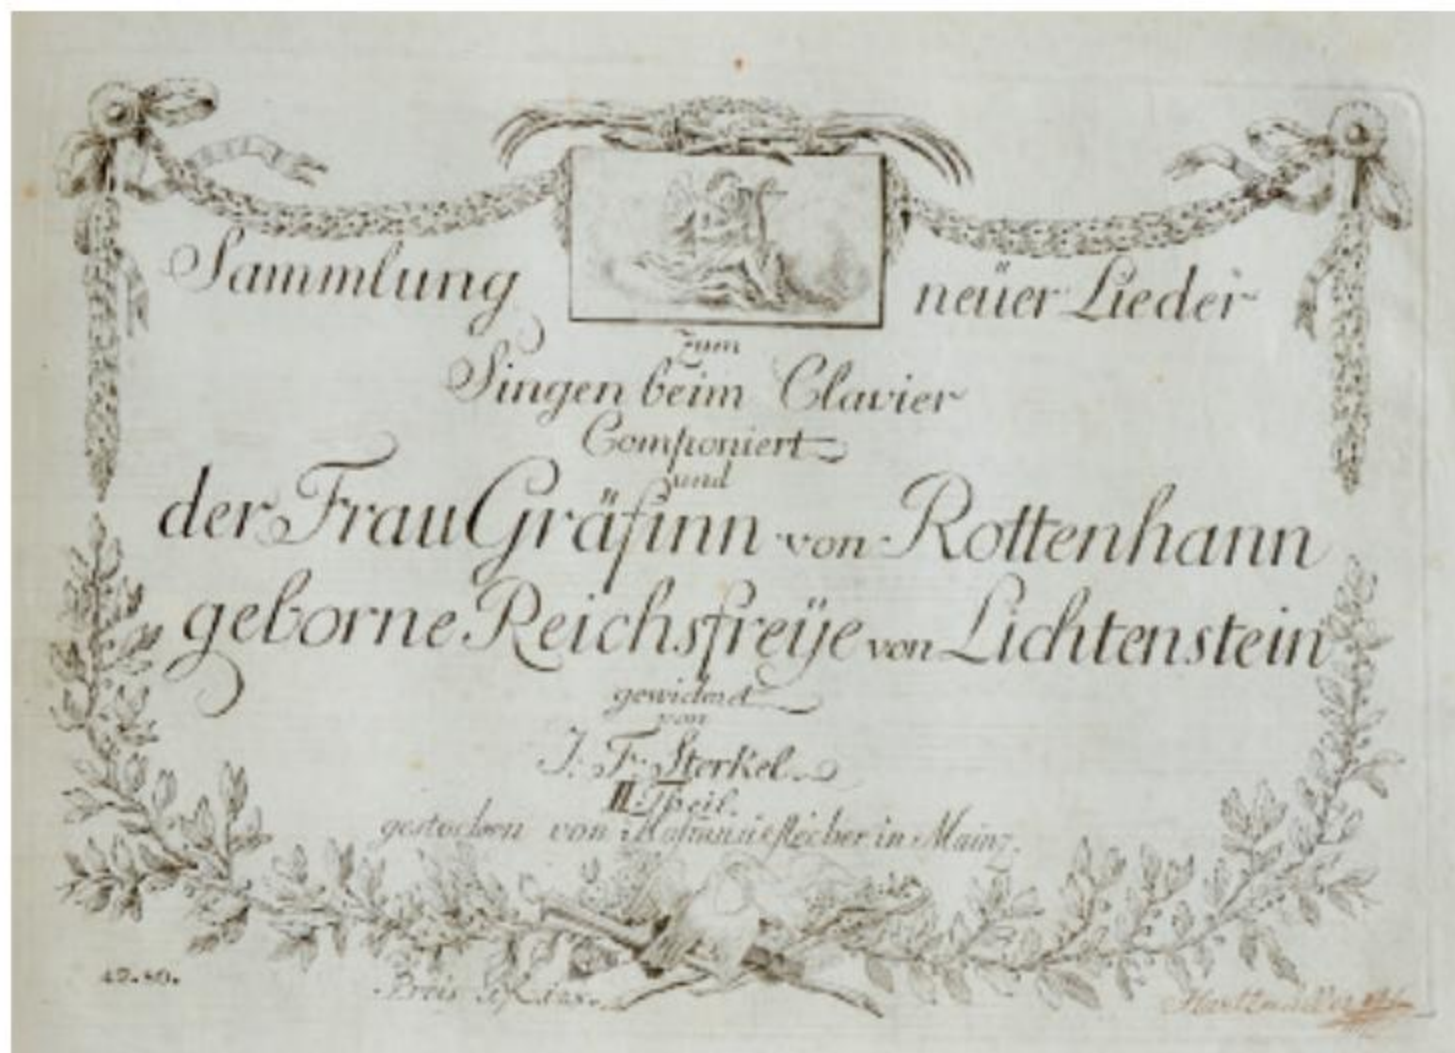 Sammlung neüer Lieder
zum
Singen beim Clavier
Componiert
und
der Frau Gräfinn von Rottenhann
geborne Reichsfreÿe von Lichtenstein
gewidmet
von
J. F. Sterkel
II. Theil.
gestochen von in Mainz.
Preis